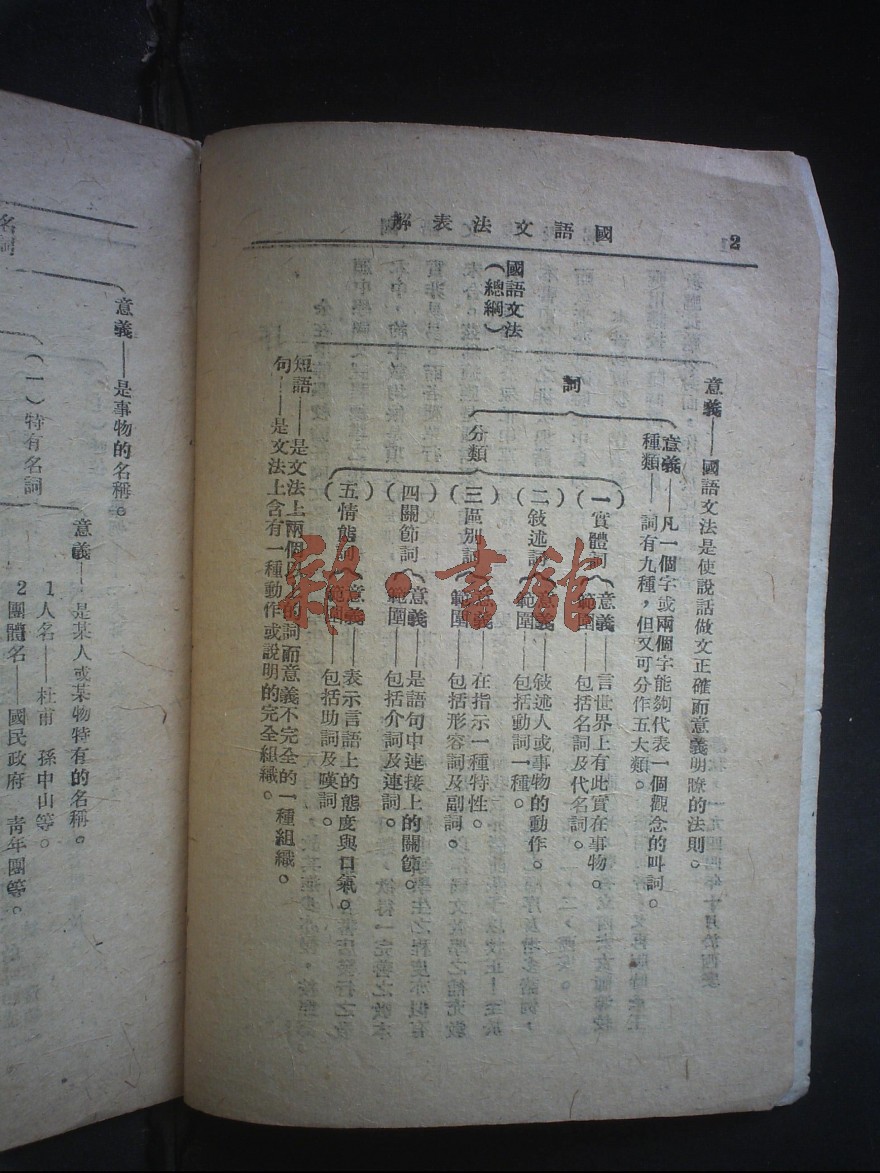 國語文法表解
2
國語文法
(總綱)
意義——國語文法是使說話做文正確而意義明瞭的法則。
詞
意義——凡一個字或兩個字能夠代表一個觀念的叫詞。
種類——詞有九種，但又可分作五大類。
分類
(一)實體詞
意義——言世界上有此實在事物。
範圍——包括名詞及代名詞。
(二)敍述詞
意義——敍述人或事物的動作。
範圍——包括動詞一種。
(三)區別詞
意義——在指示一種特性。
範圍——包括形容詞及副詞。
(四)關節詞
意義——是語句中連接上的關節。
範圍——包括介詞及連詞。
(五)情態詞
意義——表示言語上的態度與口氣。
範圍——包括助詞及嘆詞。
短語——是文法上兩個以上的詞而意義不完全的一種組織。
句——是文法上含有一種動作或說明的完全組織。
雜·書館
名詞
意義——是事物的名稱。
(一)特有名詞
意義——是某人或某物特有的名稱。
1人名——杜甫 孫中山等。
2團體名——國民政府 青年團等。